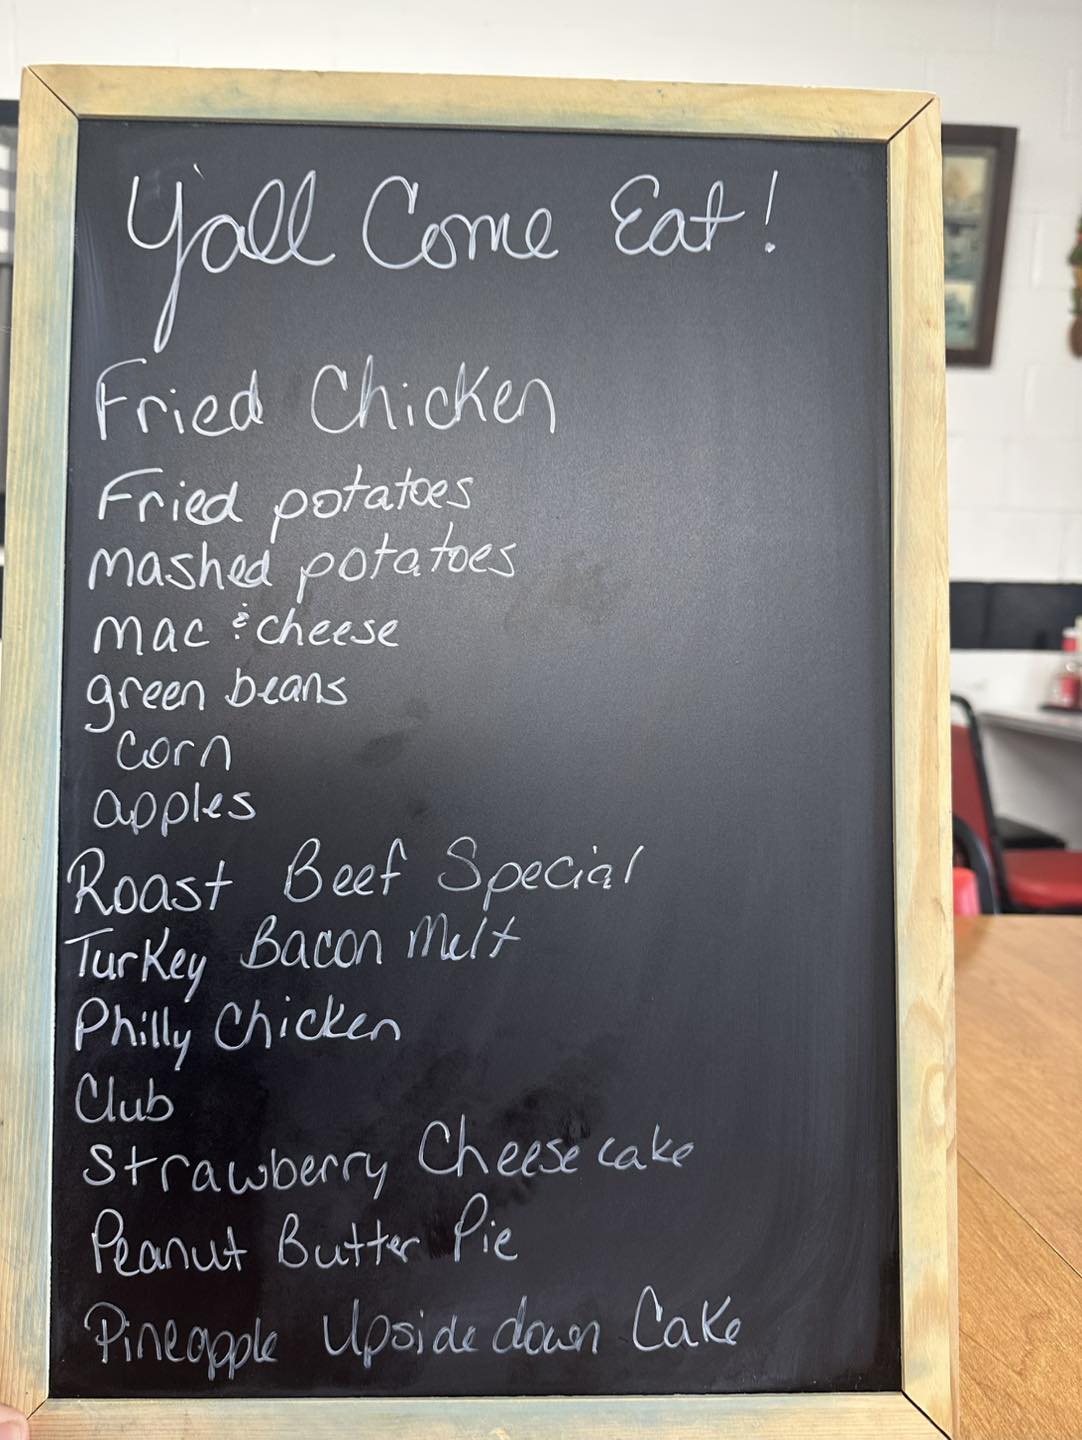 Y'all Come Eat!
Fried Chicken
Fried potatoes
mashed potatoes
mac & cheese
green beans
corn
apples
Roast Beef Special
Turkey Bacon Melt
Philly Chicken
Club
Strawberry Cheesecake
Peanut Butter Pie
Pineapple Upside down Cake